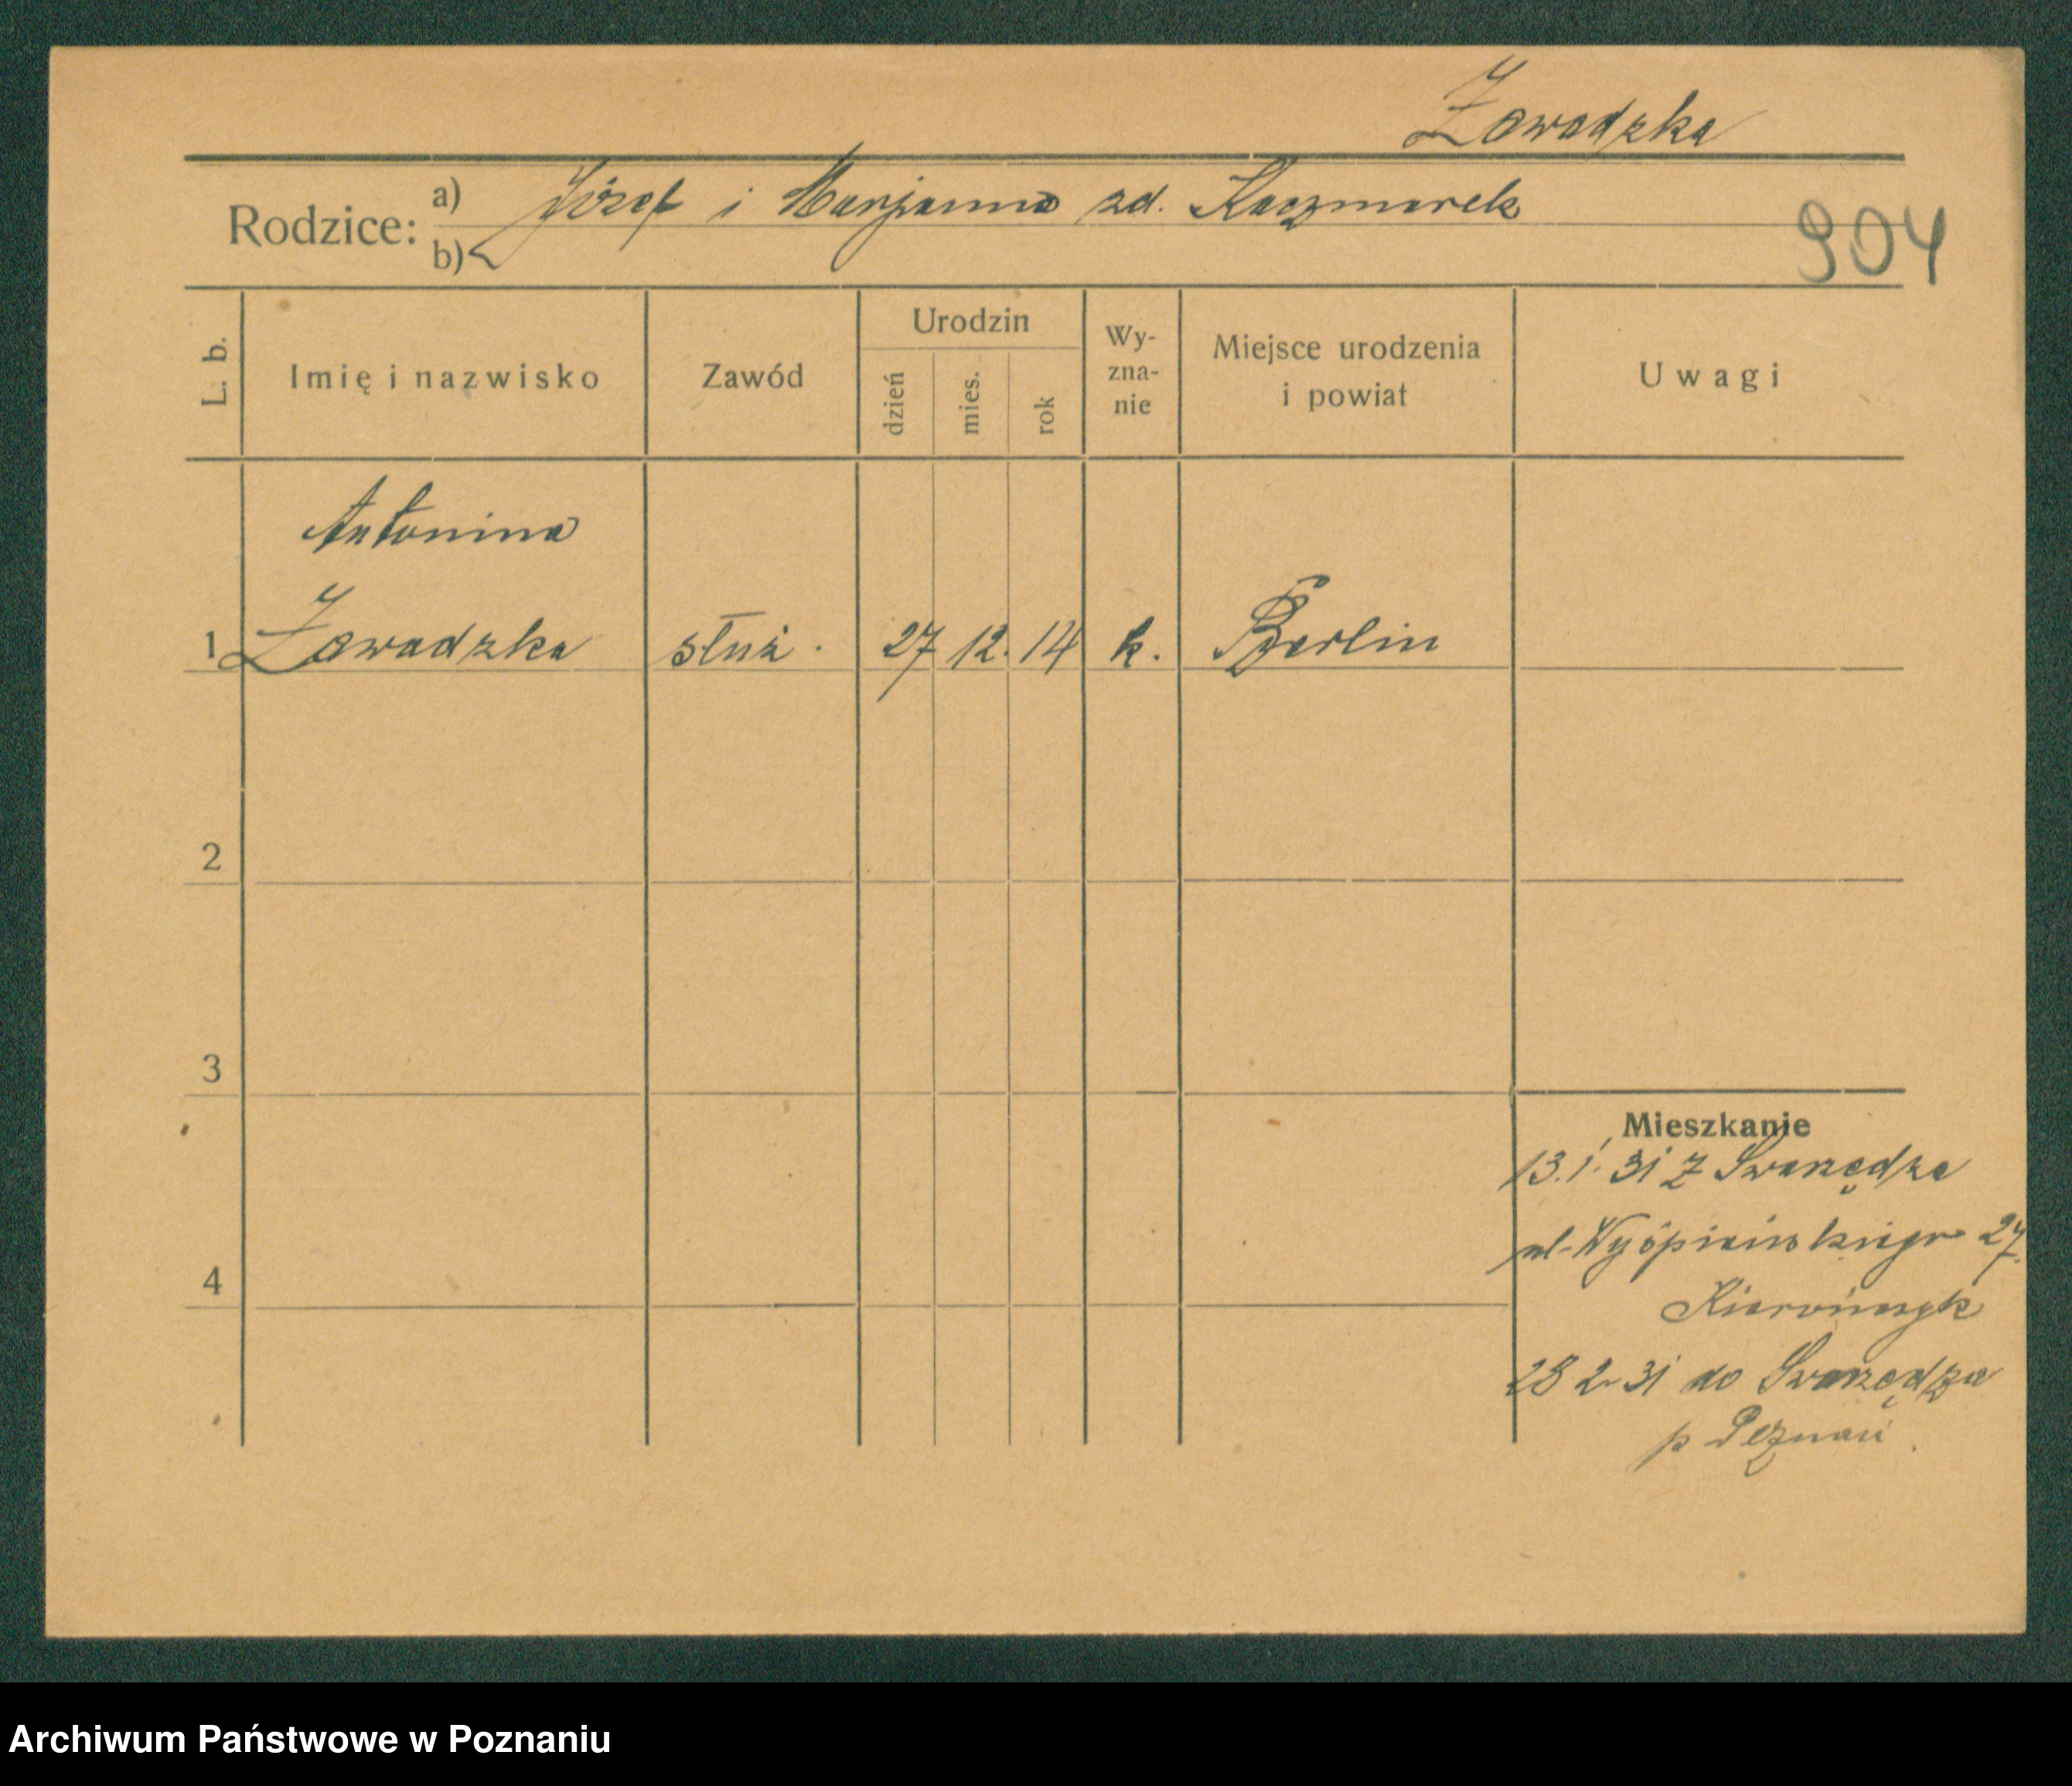 Zawadzka
Rodzice: a) Józef i Marjanna zd. Kaczmarek
b)
904
L. b.
Imię i nazwisko
Zawód
Urodzin
dzień
mies.
rok
Wy-
zna-
nie
Miejsce urodzenia
i powiat
Uwagi
Antonina
1 Zawadzka służ. 27 12. 14 k. Berlin
2
3
4
Mieszkanie
13.1.31 z Swarzędza
ul. Wyspiańskiego 27.
28 2 31 do Swarzędza
p Poznań.
Archiwum Państwowe w Poznaniu